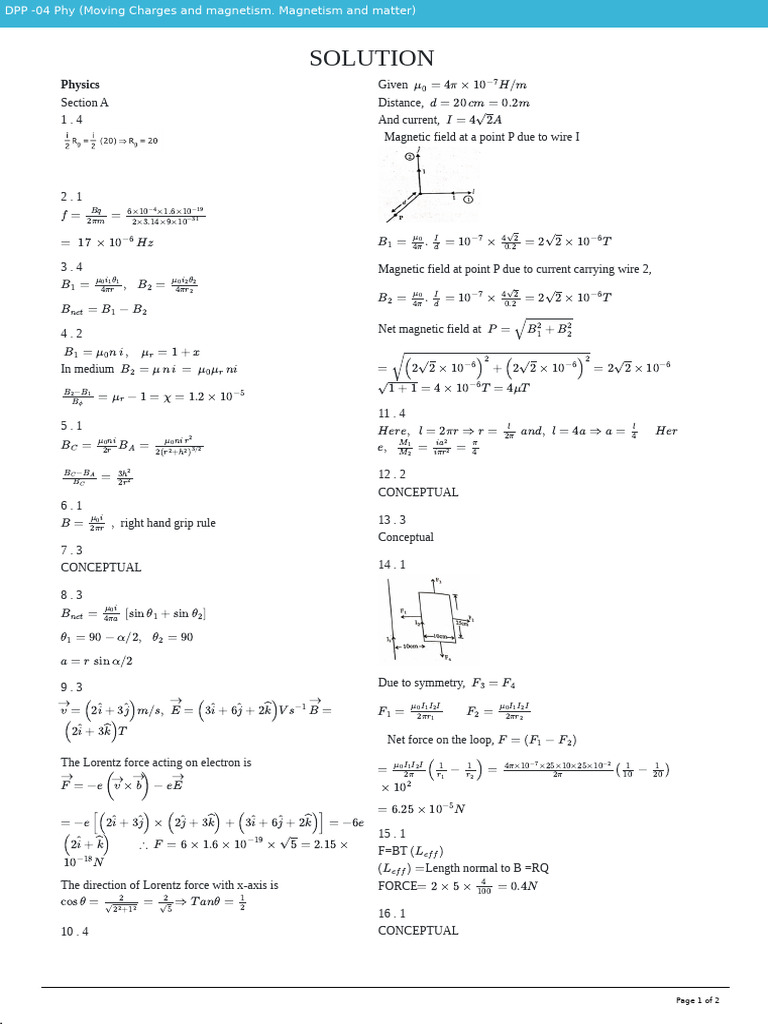 DPP -04 Phy (Moving Charges and magnetism. Magnetism and matter)
SOLUTION
Physics
Section A
1 . 4
i/2 R_g = i/2 (20) ⇒ R_g = 20
2 . 1
f = Bq/2πm = 6×10^−4×1.6×10^−19/2×3.14×9×10^−31
= 17 × 10^−6 Hz
3 . 4
B_1 = μ_0i_1θ_1/4πr, B_2 = μ_0i_2θ_2/4πr_2
B_net = B_1 − B_2
4 . 2
B_1 = μ_0 n i, μ_r = 1 + x
In medium B_2 = μ n i = μ_0μ_r ni
B_2−B_1/B_δ = μ_r − 1 = χ = 1.2 × 10^−5
5 . 1
B_C = μ_0ni/2r B_A = μ_0ni r^2/2(r^2+h^2)^3/2
B_C−B_A/B_C = 3h^2/2r^2
6 . 1
B = μ_0i/2πr , right hand grip rule
7 . 3
CONCEPTUAL
8 . 3
B_net = μ_0i/4πa [sin θ_1 + sin θ_2]
θ_1 = 90 − α/2, θ_2 = 90
a = r sin α/2
9 . 3
v⃗ = (2î + 3ĵ)m/s, E⃗ = (3î + 6ĵ + 2k̂)Vs^−1 B⃗ =
(2î + 3k̂)T
The Lorentz force acting on electron is
F⃗ = −e (v⃗ × b⃗) − eE⃗
= −e [(2î + 3ĵ) × (2ĵ + 3k̂) + (3î + 6ĵ + 2k̂)] = −6e
(2î + k̂) ∴ F = 6 × 1.6 × 10^−19 × √5 = 2.15 ×
10^−18N
The direction of Lorentz force with x-axis is
cos θ = 2/√2^2+1^2 = 2/√5 ⇒ Tanθ = 1/2
10 . 4
Given μ_0 = 4π × 10^−7H/m
Distance, d = 20 cm = 0.2m
And current, I = 4√2A
Magnetic field at a point P due to wire I
2
I
1
I
1
P
B_1 = μ_0/4π . I/d = 10^−7 × 4√2/0.2 = 2√2 × 10^−6T
Magnetic field at point P due to current carrying wire 2,
B_2 = μ_0/4π . I/d = 10^−7 × 4√2/0.2 = 2√2 × 10^−6T
Net magnetic field at P = √B_1^2 + B_2^2
= √(2√2 × 10^−6)^2 + (2√2 × 10^−6)^2 = 2√2 × 10^−6
√1 + 1 = 4 × 10^−6T = 4μT
11 . 4
Here, l = 2πr ⇒ r = l/2π and, l = 4a ⇒ a = l/4 Her
e, M_1/M_2 = ia^2/iπr^2 = π/4
12 . 2
CONCEPTUAL
13 . 3
Conceptual
14 . 1
F_3
F_1
I_2
F_2
25cm
10cm
I_1
10cm
F_4
Due to symmetry, F_3 = F_4
F_1 = μ_0I_1I_2I/2πr_1 F_2 = μ_0I_1I_2I/2πr_2
Net force on the loop, F = (F_1 − F_2)
= μ_0I_1I_2I/2π (1/r_1 − 1/r_2) = 4π×10^−7×25×10×25×10^−2/2π (1/10 − 1/20)
× 10^2
= 6.25 × 10^−5N
15 . 1
F=BT (L_eff)
(L_eff) =Length normal to B =RQ
FORCE= 2 × 5 × 4/100 = 0.4N
16 . 1
CONCEPTUAL
Page 1 of 2